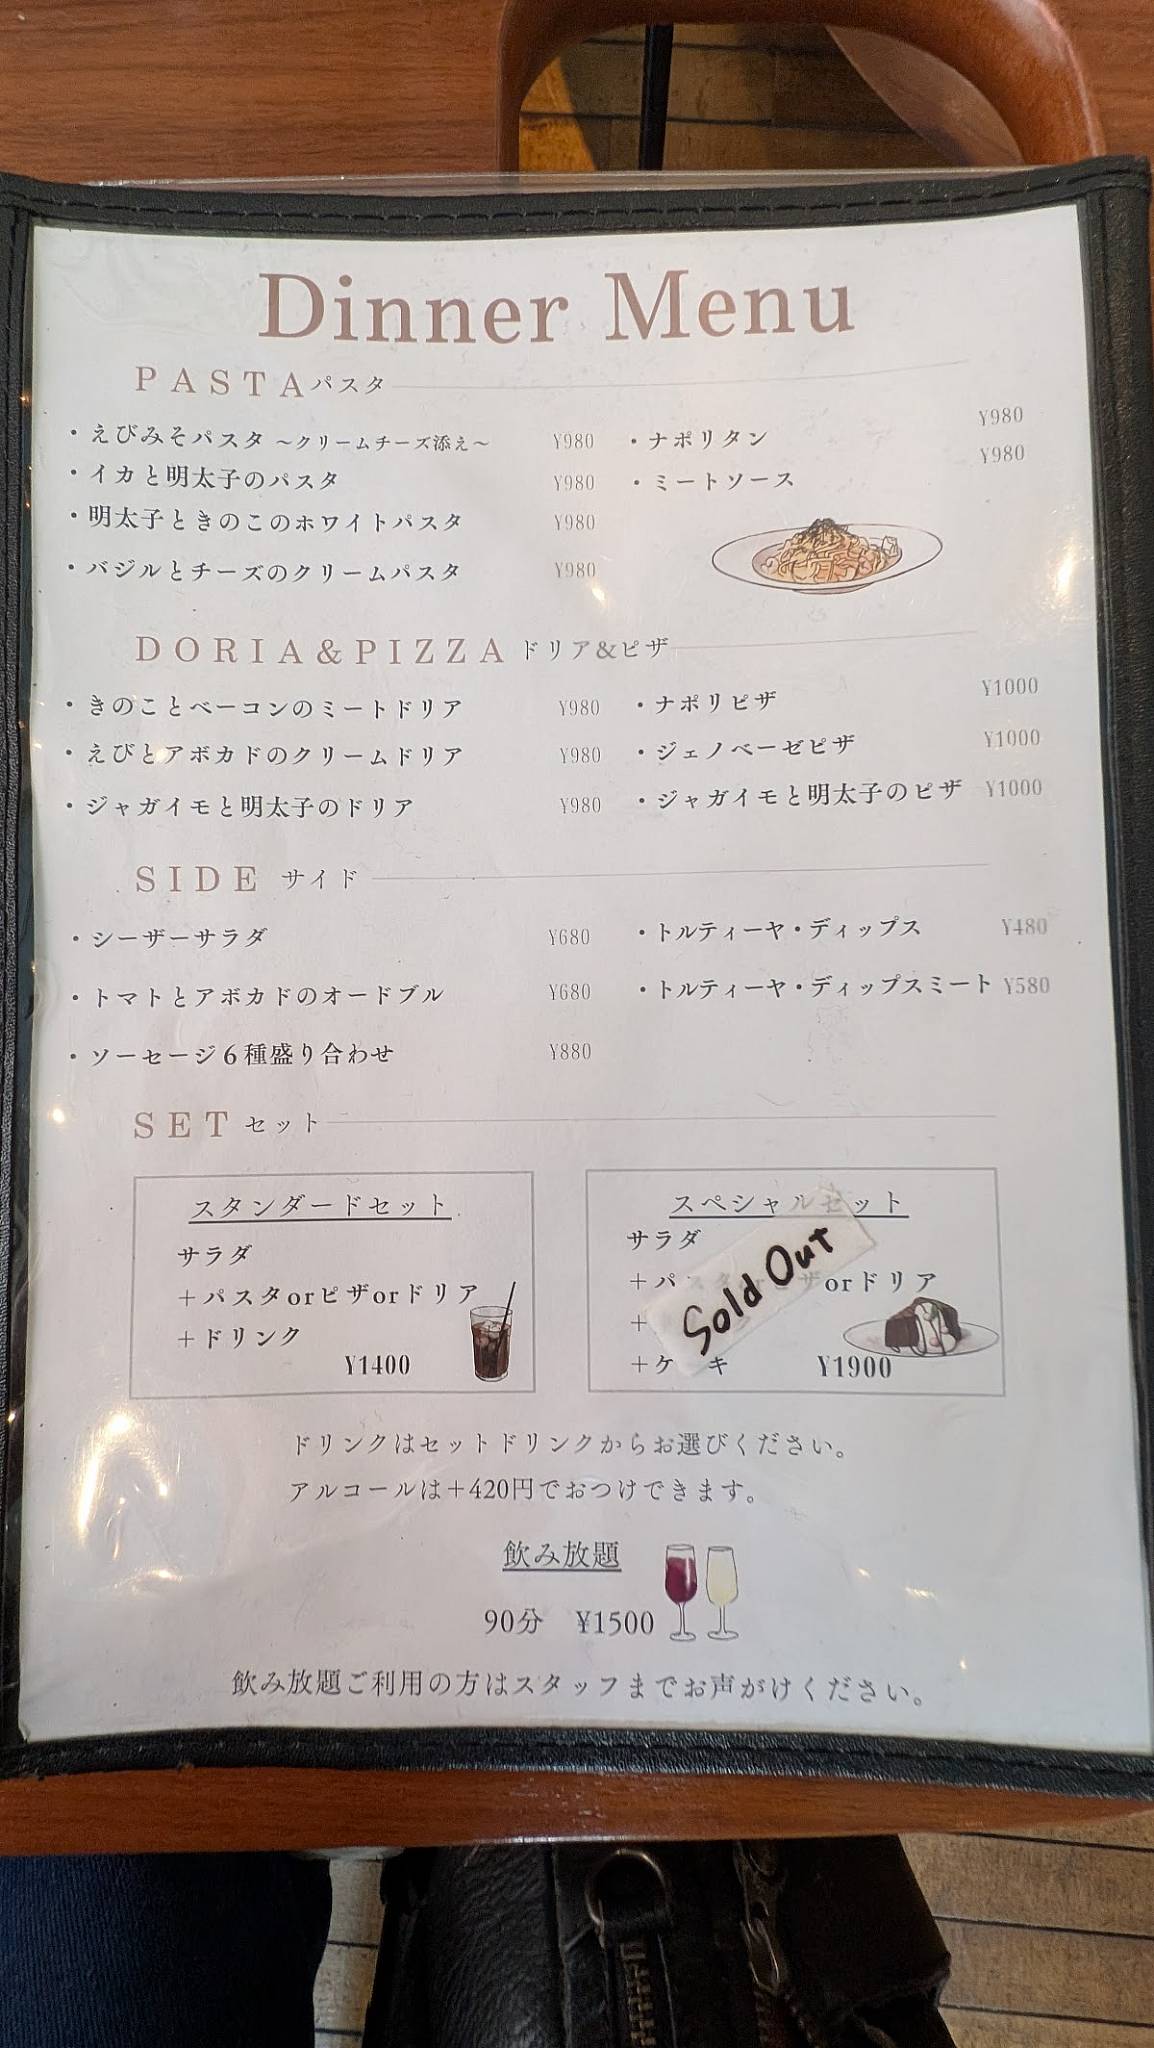 Dinner Menu
PASTA パスタ
・えびみそパスタ ～クリームチーズ添え～ ¥980
・イカと明太子のパスタ ¥980
・明太子ときのこのホワイトパスタ ¥980
・バジルとチーズのクリームパスタ ¥980
・ナポリタン ¥980
・ミートソース ¥980
DORIA&PIZZA ドリア&ピザ
・きのことベーコンのミートドリア ¥980
・えびとアボカドのクリームドリア ¥980
・ジャガイモと明太子のドリア ¥980
・ナポリピザ ¥1000
・ジェノベーゼピザ ¥1000
・ジャガイモと明太子のピザ ¥1000
SIDE サイド
・シーザーサラダ ¥680
・トマトとアボカドのオードブル ¥680
・ソーセージ6種盛り合わせ ¥880
・トルティーヤ・ディップス ¥480
・トルティーヤ・ディップスミート ¥580
SET セット
スタンダードセット
サラダ
＋パスタorピザorドリア
＋ドリンク
¥1400
スペシャルセット
サラダ
＋パスタorピザorドリア
＋
＋ケ キ ¥1900
Sold Out
ドリンクはセットドリンクからお選びください。
アルコールは＋420円でおつけできます。
飲み放題
90分 ¥1500
飲み放題ご利用の方はスタッフまでお声がけください。